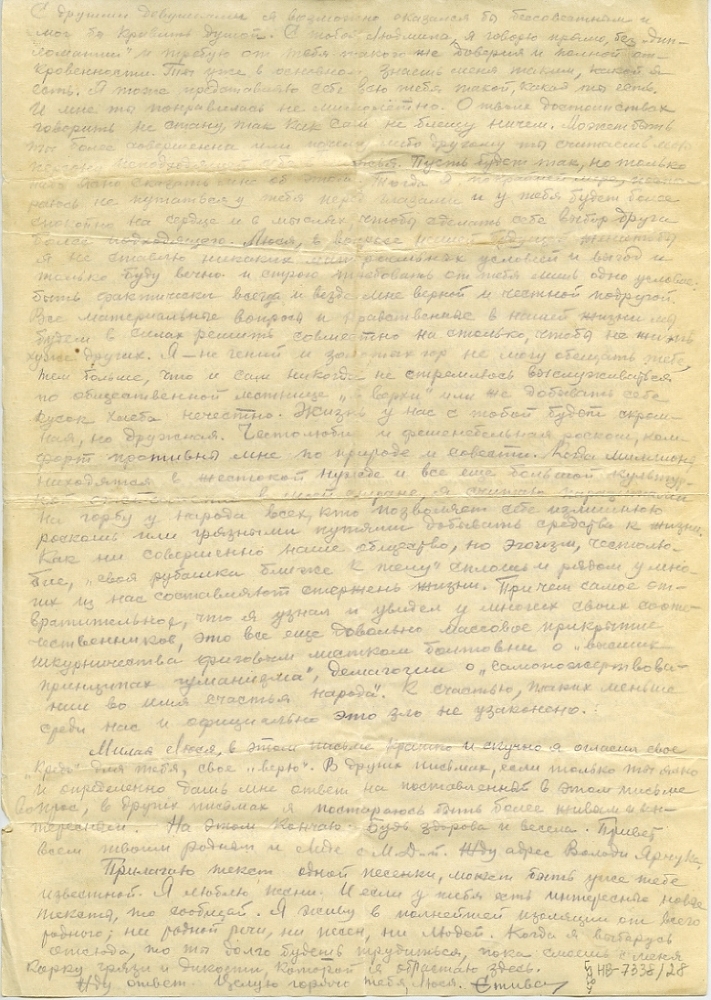 С другими девушками я возможно оказался бы бессовестным и
мог бы кривить душой. С тобой Людмила, я говорю прямо, без „дип-
ломатии" и требую от тебя такого же доверия и полной от-
кровенности. Ты уже в основном знаешь меня таким, какой я
есть. Я тоже представляю себе всю тебя такой, какая ты есть.
И мне ты понравилась не мимолетно. О твоих достоинствах
говорить не стану, так как сам не блещу ничем. Может быть
ты более совершенна или по какой либо другому ты считаешь
Пусть будет так, но только
мне об этом. Тогда я
раюсь не путаться у тебя перед глазами и у тебя будет более
спокойно на сердце и в мыслях, чтобы сделать себе выбор друга
более подходящего. Люся, в вопросе нашей будущей женитьбы
я не ставлю никаких материальных условий и выгод и
только буду вечно и строго требовать от тебя лишь одно условие:
быть фактически всегда и везде мне верной и честной подругой.
Все материальные вопросы и нравственные в нашей жизни мы
будем в силах решить совместно на столько, чтобы не жить
хуже других. Я – не гений и золотых гор не могу обещать тебе,
тем больше, что и сам никогда не стремлюсь выслуживаться
по общественной лестнице „в верхи" или же добывать себе
кусок хлеба нечестно. Жизнь у нас с тобой будет скром-
ная, но дружная. Честолюбие и фешенебельная роскошь, ком-
форт противны мне по природе и совести. Когда миллионы
находятся в жестокой нужде и все еще большой культур-
ной в моей стране, я считаю паразитами
на горбу у народа всех, кто позволяет себе излишнюю
роскошь или грязными путями добывать средства к жизни.
Как ни совершенно наше общество, но эгоизм, честолю-
бие, „своя рубашка ближе к телу" сплошь и рядом у мно-
гих из нас составляют стержень жизни. Причем самое от-
вратительное, что я узнал и увидел у многих своих соот-
чественников, это все еще довольно массовое прикрытие
шкурничества фиговым листком болтовни о „высших
принципах гуманизма", демагогии о „самопожертвова-
нии во имя счастья народа". К счастью, таких меньше
среди нас и официально это зло не узаконено..
Милая Люся, в этом письме кратко и скучно я огласил свое
„кредо" для тебя, свое „верю". В других письмах, если только ты ясно
и определенно дашь мне ответ на поставленный в этом письме
вопрос, в других письмах я постараюсь быть более живым и ин-
тересным. На этом кончаю. Будь здорова и весела. Привет
всем твоим родным и Лиде с М.Д. Жду адрес Володи Ярчука.
Прилагаю текст одной песенки, может быть уже тебе
известной. Я люблю песни. И если у тебя есть интересные новые
тексты, то сообщай. Я живу в полнейшей изоляции от всего
родного; ни родной речи, ни песен, ни людей. Когда я выберусь
отсюда, то ты долго будешь трудиться, пока смоешь с меня
корку грязи и дикости, которой я обрастаю здесь.
Жду ответ. Целую горячо тебя, Люся. Стива
НВ-7338/28